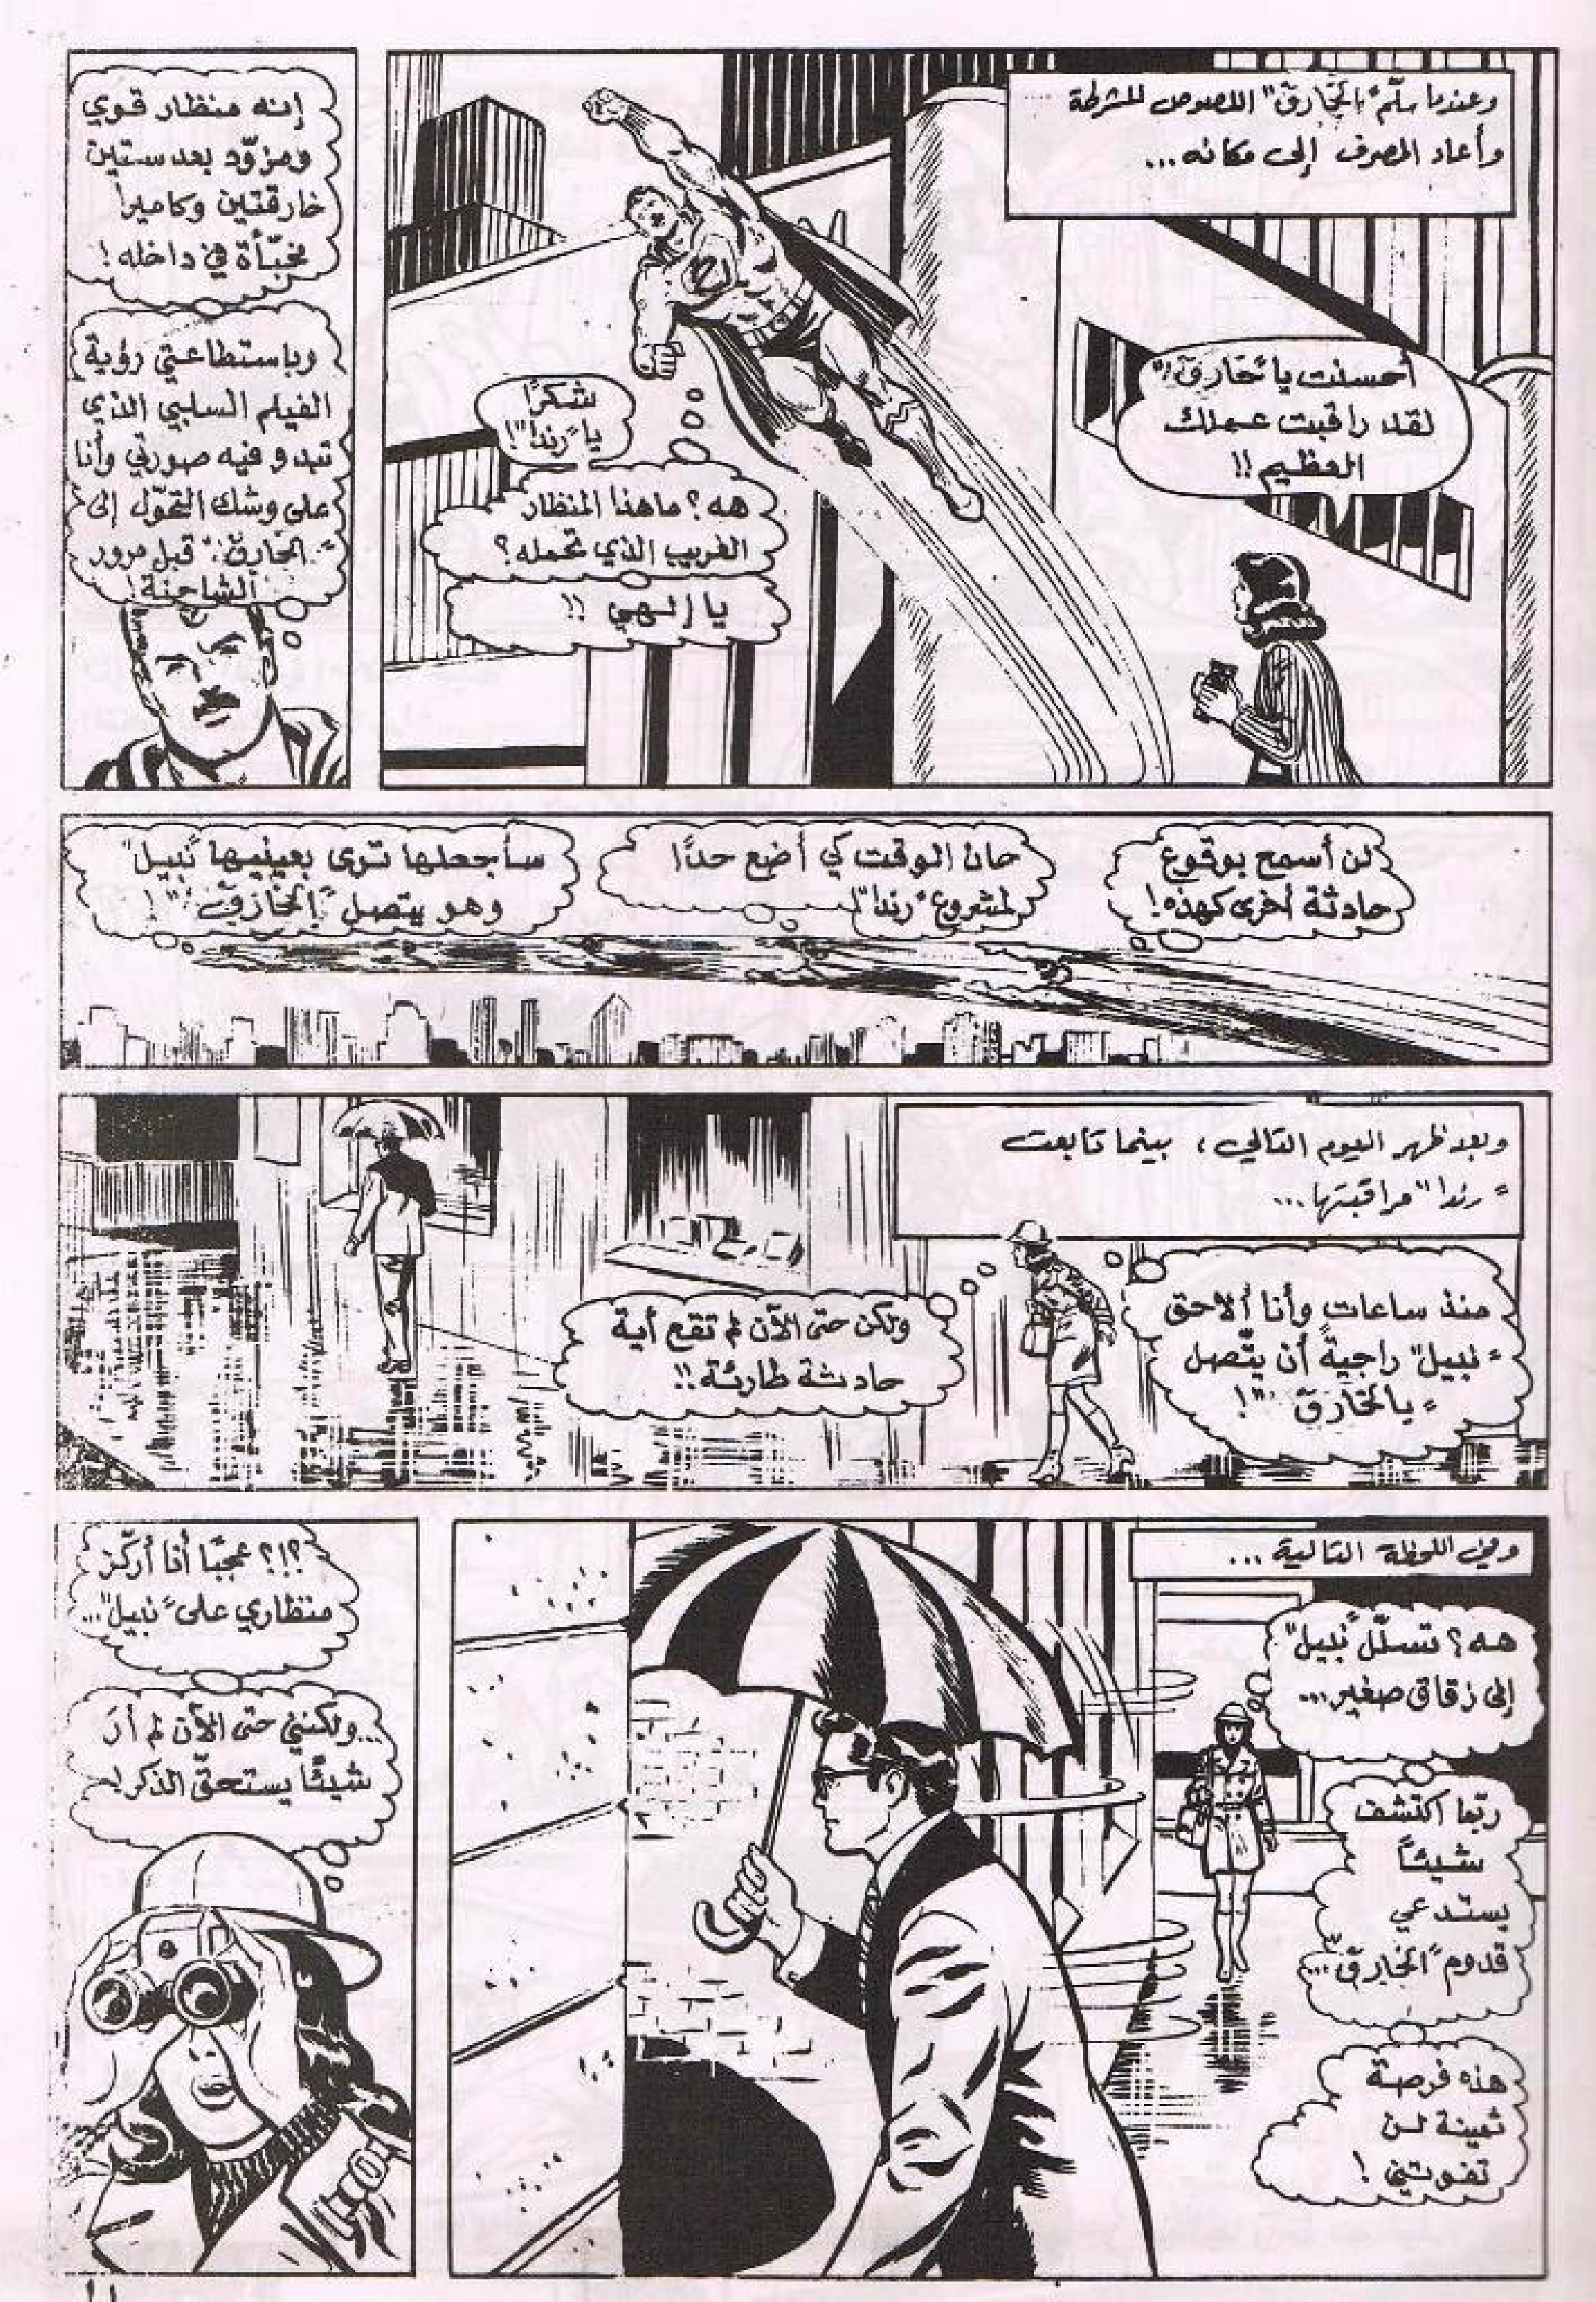 وعندما سلّم "الخارق" اللصوص للشرطة
وأعاد المصرف إلى مكانه...
أحسنت يا "خارق"!
لقد راقبت عملك
العظيم!!
شكرًا
يا "رندا"!
هه؟ ما هذا المنظار
الغريب الذي تحمله؟
يا إلهي!!
إنه منظار قوي
ومزوّد بعدستين
خارقتين وكاميرا
مخبّأة في داخله!
وباستطاعتي رؤية
الفيلم السلبي الذي
تبدو فيه صورتي وأنا
على وشك التحوّل إلى
"الخارق" قبل مرور
الشاحنة!
لن أسمح بوقوع
حادثة أخرى كهذه!
حان الوقت كي أضع حدًا
لمشروع "رندا"!
سأجعلها ترى بعينيها "نبيل"
وهو يتصل "بالخارق"!
وبعد ظهر اليوم التالي، بينما تابعت
"رندا" مراقبتها...
منذ ساعات وأنا ألاحق
"نبيل" راجيةً أن يتّصل
"بالخارق"!
ولكن حتى الآن لم تقع أية
حادثة طارئة!!
وفي اللحظة التالية...
هه؟ تسلّل "نبيل"
إلى زقاق صغير...
ربّما اكتشف
شيئاً
يستدعي
قدوم "الخارق"...
هذه فرصة
ثمينة لن
تفوتني!
؟!؟ عجبًا أنا أركّز
منظاري على "نبيل"...
...ولكنني حتى الآن لم أرَ
شيئًا يستحقّ الذكر!
١١